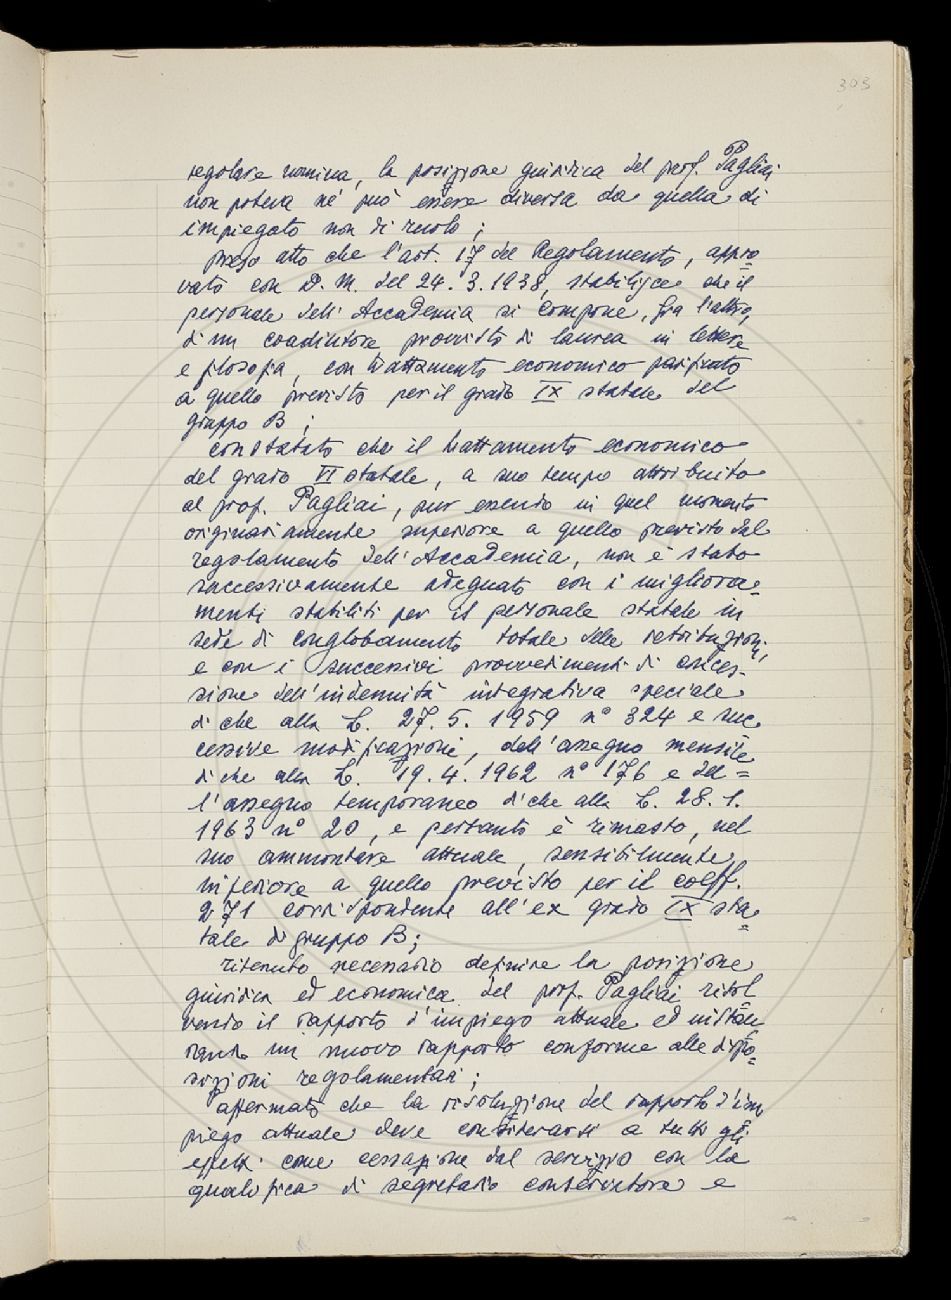 303
regolare nomina, la posizione giuridica del prof. Pagliai
non poteva né può essere diversa da quella di
impiegato non di ruolo;
preso atto che l'art. 17 del Regolamento, appro=
vato con D. M. del 24.3.1938, stabilisce che il
personale dell'Accademia si compone, fra l'altro,
di un coadiutore provvisto di laurea in lettere
e filosofia, con trattamento economico parificato
a quello previsto per il grado IX statale del
gruppo B;
constatato che il trattamento economico
del grado VI statale, a suo tempo attribuito
al prof. Pagliai, pur essendo in quel momento
originariamente superiore a quello previsto dal
regolamento dell'Accademia, non è stato
successivamente adeguato con i migliora=
menti stabiliti per il personale statale in
sede di conglobamento totale delle retribuzioni,
e con i successivi provvedimenti di conces-
sione dell'indennità integrativa speciale
di che alla L. 27.5.1959 n° 324 e suc
cessive modificazioni, dell'assegno mensile
di che alla L. 19.4.1962 n° 176 e del=
l'assegno temporaneo di che alla L. 28.1.
1963 n° 20, e pertanto è rimasto, nel
suo ammontare attuale, sensibilmente
inferiore a quello previsto per il coeff.
271 corrispondente all'ex grado IX sta=
tale di gruppo B;
ritenuto necessario definire la posizione
giuridica ed economica del prof. Pagliai risol
vendo il rapporto d'impiego attuale ed instau
rando un nuovo rapporto conforme alle dispo=
sizioni regolamentari;
affermato che la risoluzione del rapporto d'im
piego attuale deve considerarsi a tutti gli
effetti come cessazione dal servizio con la
qualifica di segretario conservatore e